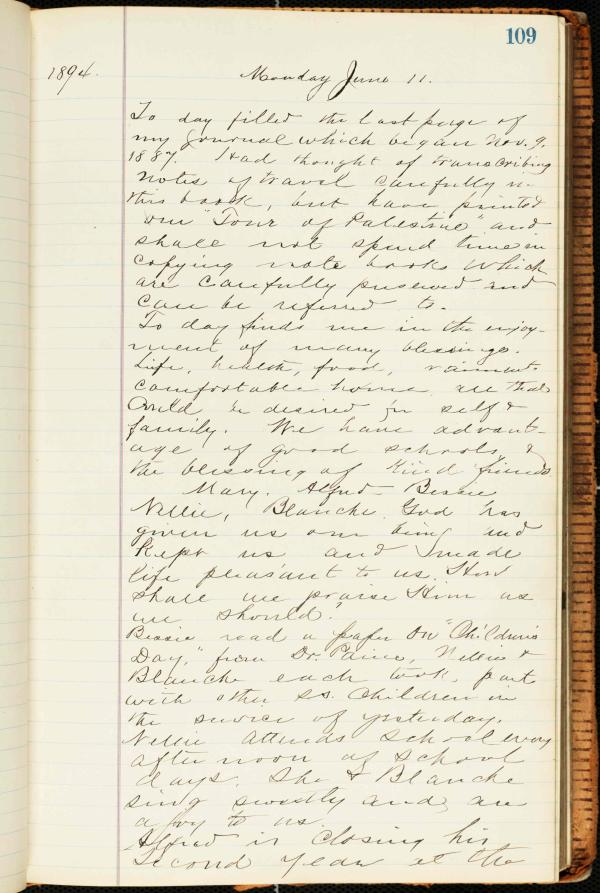 109
1894. Monday June 11.
To day filled the last page of
my journal which began Nov. 9.
1887. Had thought of transcribing
notes of travel carefully in
this book, but have printed
our "Tour of Palestine" and
shall not spend time in
copying note books which
are carefully preserved and
can be referred to.
To day finds me in the enjoy-
ment of many blessings.
Life, health, food, raiment
comfortable home all that
could be desired for self &
family. We have advant-
age of good schools, &
the blessing of kind friends
Mary, Alfred Bessie
Nellie, Blanche God has
given us our being and
kept us and made
life pleasant to us. How
shall we praise Him as
we should!
Bessie read a paper on "Children's
Day," from Dr. Paine, Nellie &
Blanche each took part
with other S.S. Children in
the service of yesterday.
Nellie attends school every
afternoon of school
days. She & Blanche
sing sweetly and are
a joy to us.
Alfred is closing his
second year at the